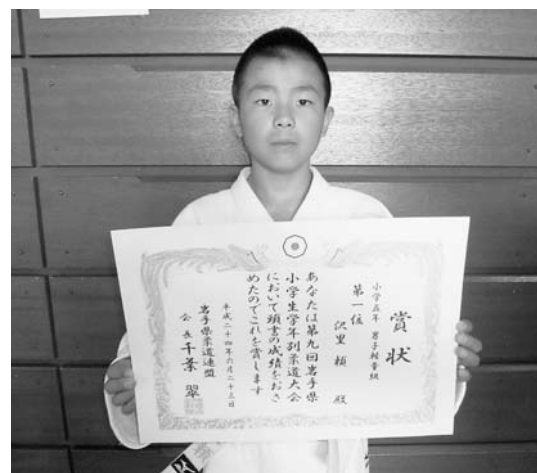 賞状
小学五年 男子軽量組
第一位
沢里 頼 殿
あなたは第九回岩手県
小学生学年別柔道大会
において頭書の成績をおさ
めたのでこれを賞します
平成二十四年六月二十三日
岩手県柔道連盟
会長 千葉 翠